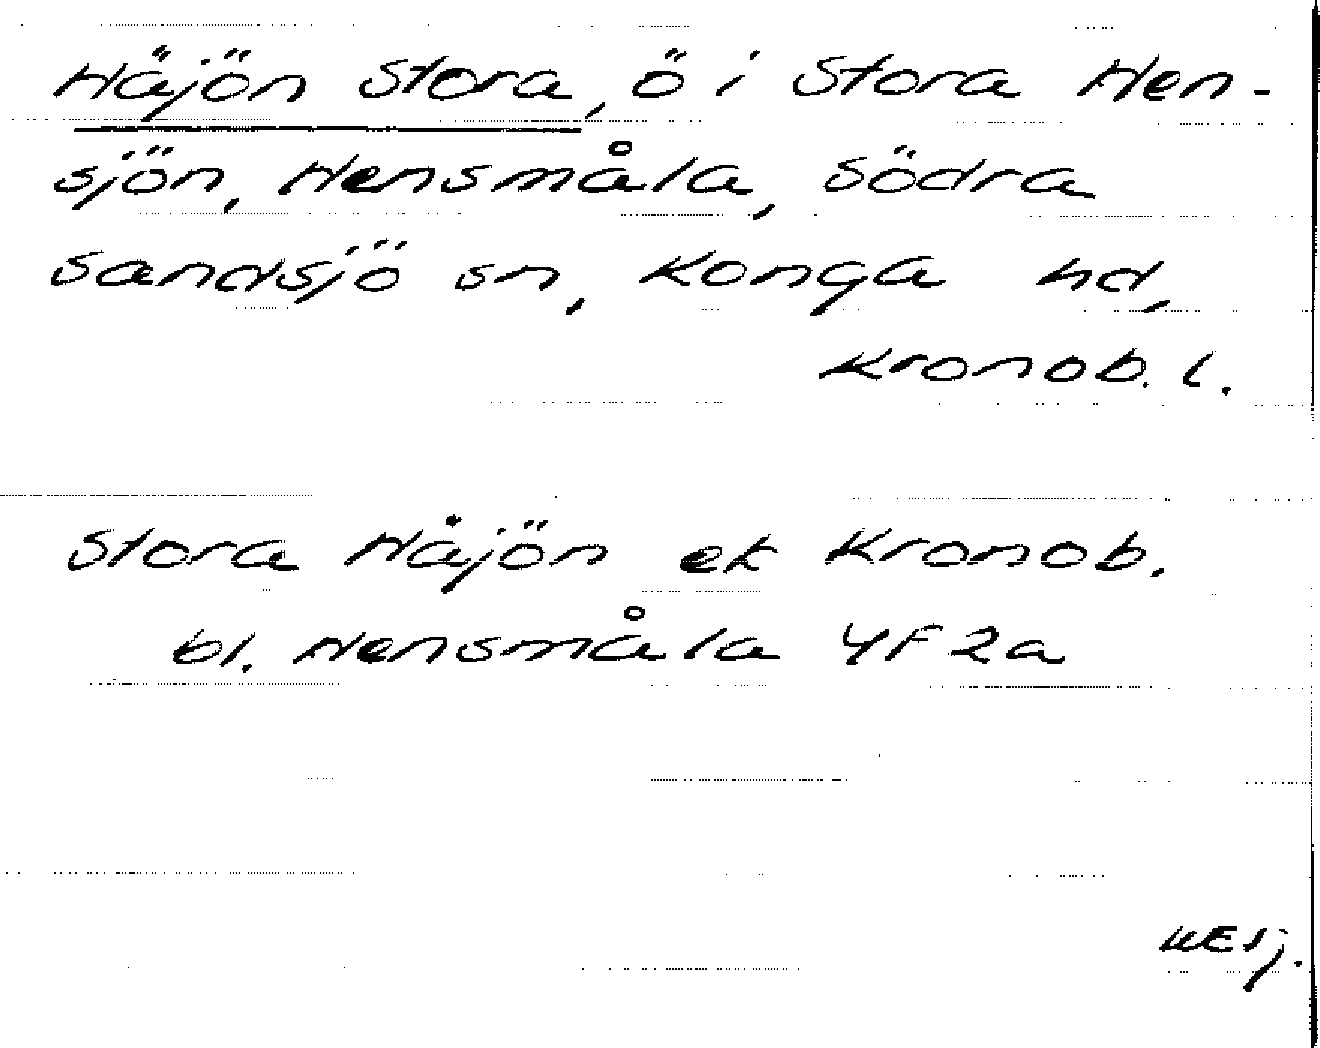 Håjön Stora, ö i Stora Hen-
sjön, Hensmåla, Södra
Sandsjö sn, Konga hd,
Kronob. l.
Stora Håjön ek Kronob.
bl. Hensmåla 4F 2a